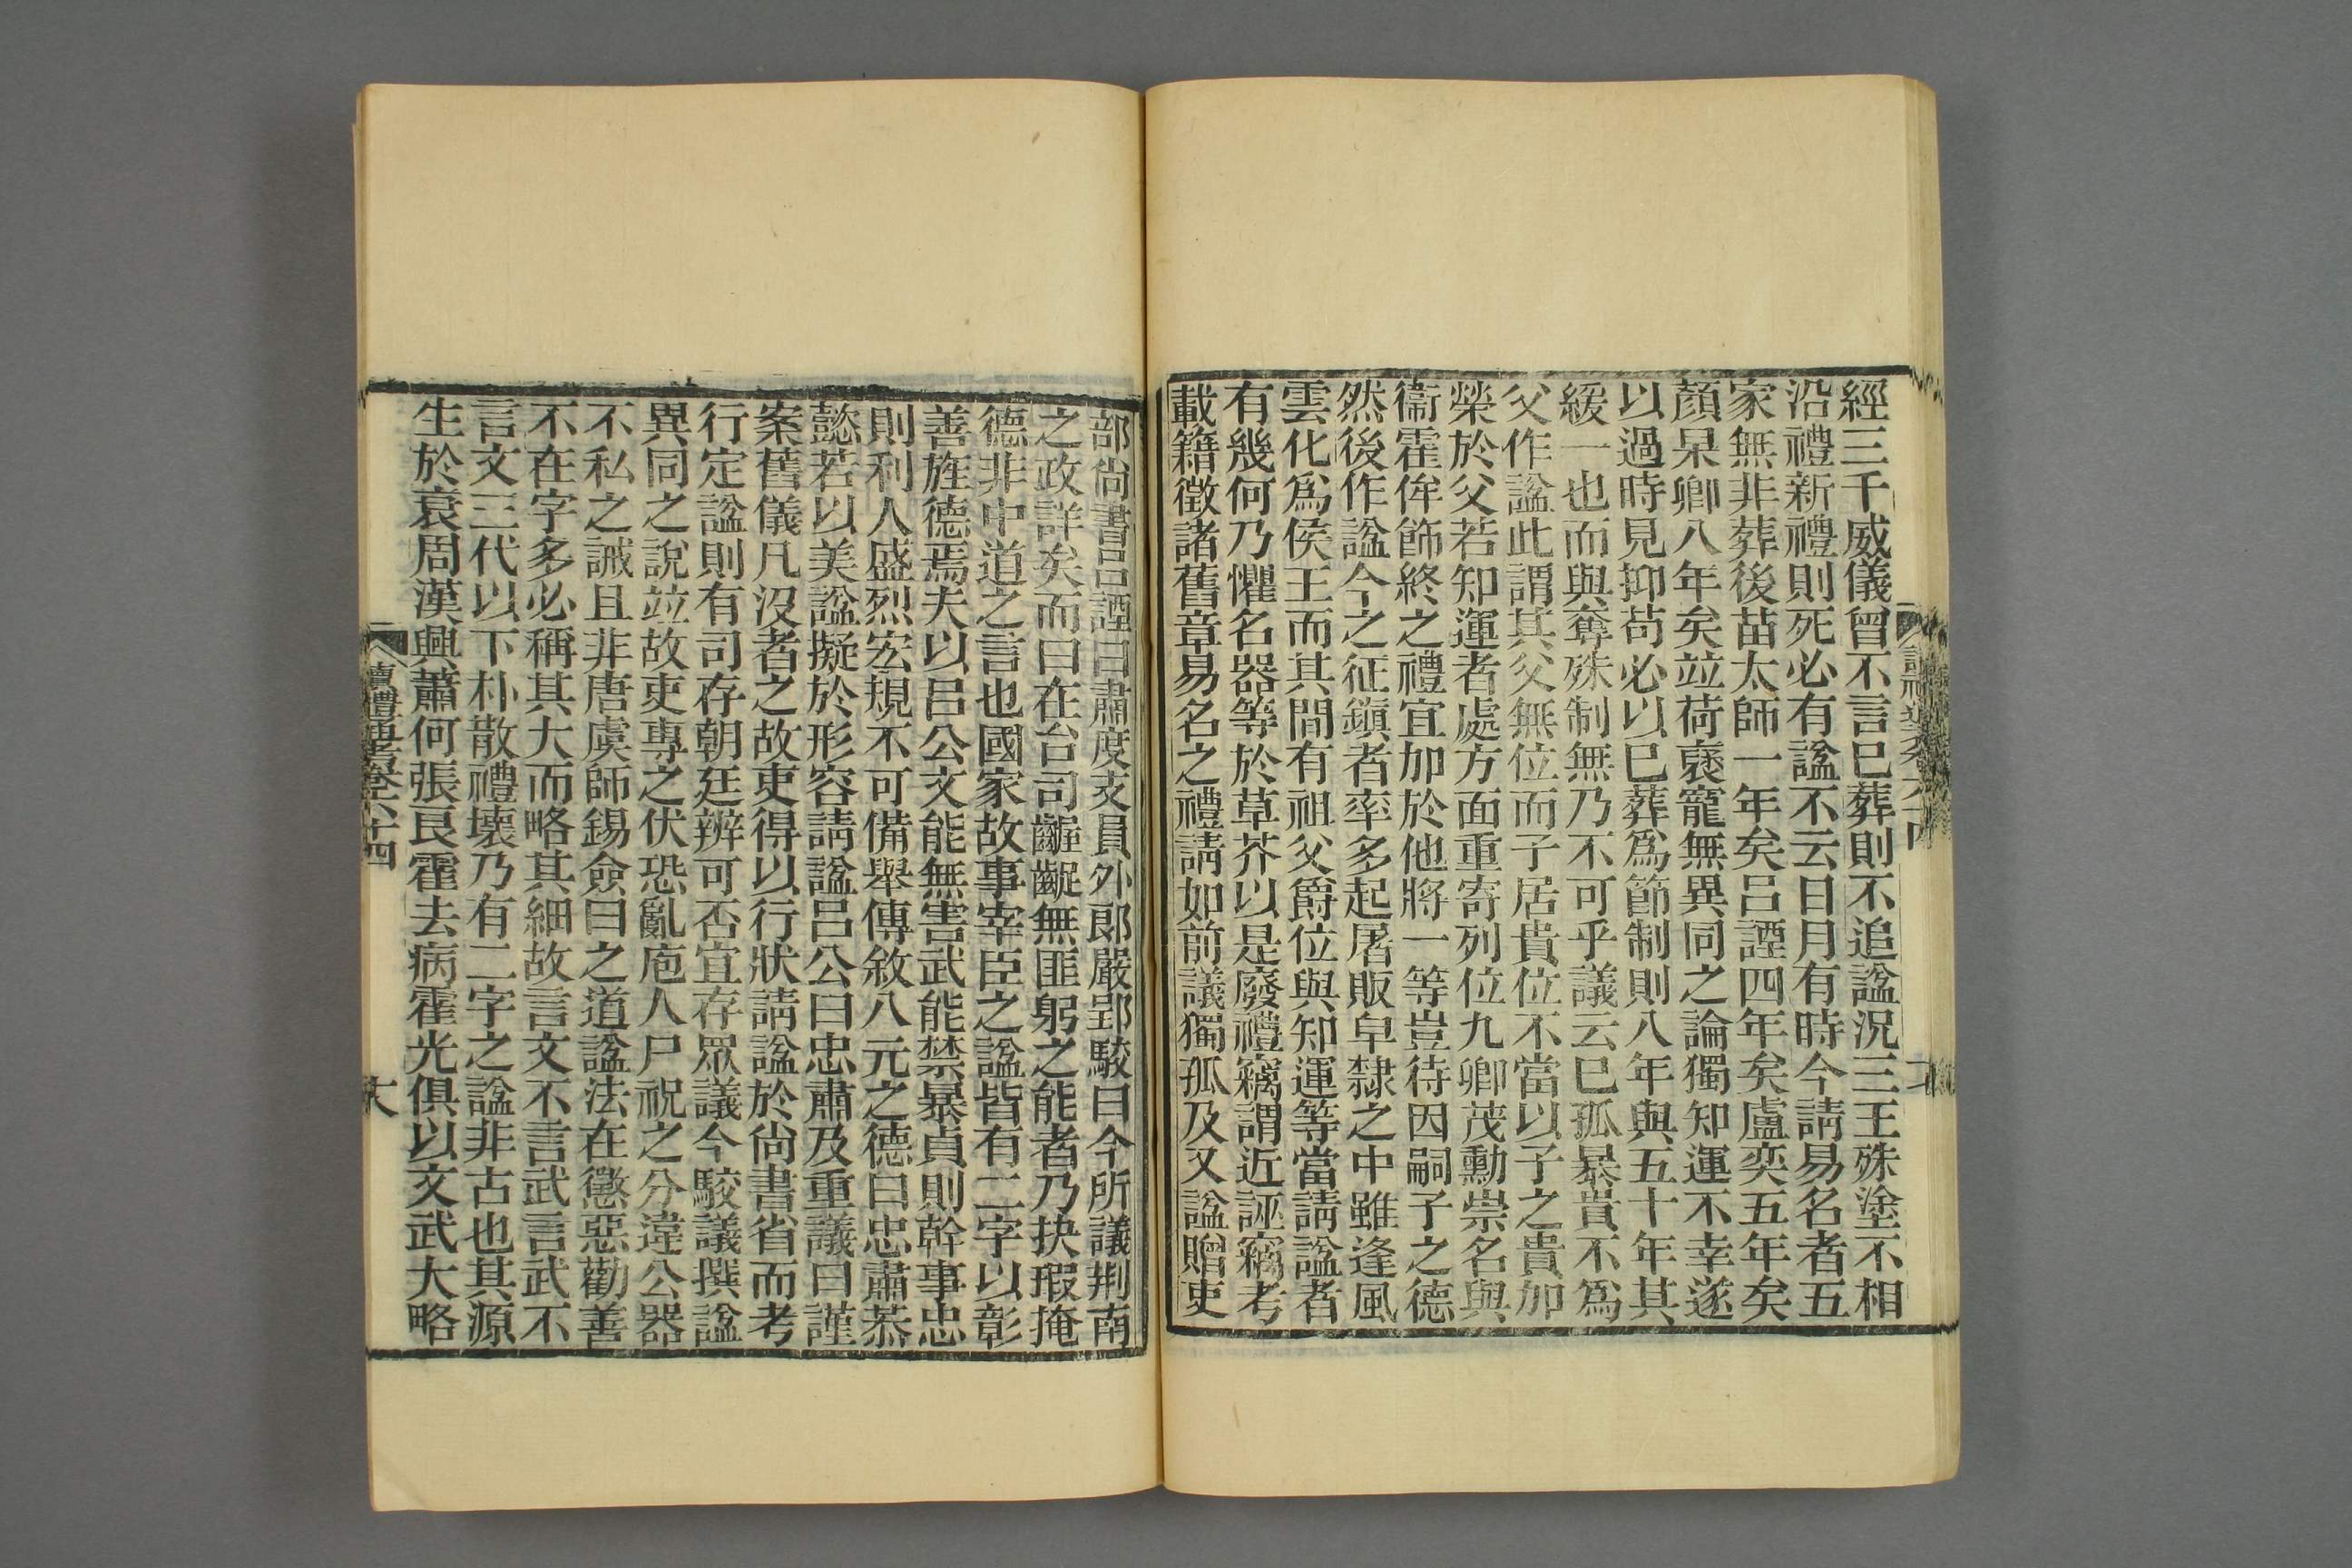 經三千威儀曾不言已葬則不追諡況三王殊塗不相
沿禮新禮則死必有諡不云日月有時今請易名者五
家無非葬後苗太師一年矣呂諲四年矣盧奕五年矣
顏杲卿八年矣竝荷襃寵無異同之論獨知運不幸遂
以過時見抑苟必以已葬爲節制則八年與五十年其
緩一也而與奪殊制無乃不可乎議云已孤暴貴不爲
父作諡此謂其父無位而子居貴位不當以子之貴加
榮於父若知運者處方面重寄列位九卿茂勳崇名與
衞霍侔飾終之禮宜加於他將一等豈待因嗣子之德
然後作諡今之征鎭者率多起屠販皁隸之中雖逢風
雲化爲侯王而其間有祖父爵位與知運等當請諡者
有幾何乃懼名器等於草芥以是廢禮竊謂近誣竊考
載籍徵諸舊章易名之禮請如前議獨孤及又諡贈吏
部尚書呂諲曰肅度支員外郞嚴郢駮曰今所議荆南
之政詳矣而曰在台司齷齪無匪躬之能者乃抉瑕掩
德非中道之言也國家故事宰臣之諡皆有二字以彰
善旌德焉夫以呂公文能無害武能禁暴貞則幹事忠
則利人盛烈宏規不可備舉傳敘八元之德曰忠肅恭
懿若以美諡擬於形容請諡呂公曰忠肅及重議曰謹
案舊儀凡沒者之故吏得以行狀請諡於尚書省而考
行定諡則有司存朝廷辨可否宜存眾議今駮議撰諡
異同之說竝故吏專之伏恐亂庖人尸祝之分違公器
不私之誡且非唐虞師錫僉曰之道諡法在懲惡勸善
不在字多必稱其大而略其細故言文不言武言武不
言文三代以下朴散禮壞乃有二字之諡非古也其源
生於衰周漢興蕭何張良霍去病霍光俱以文武大略
讀禮通考卷六十四
大